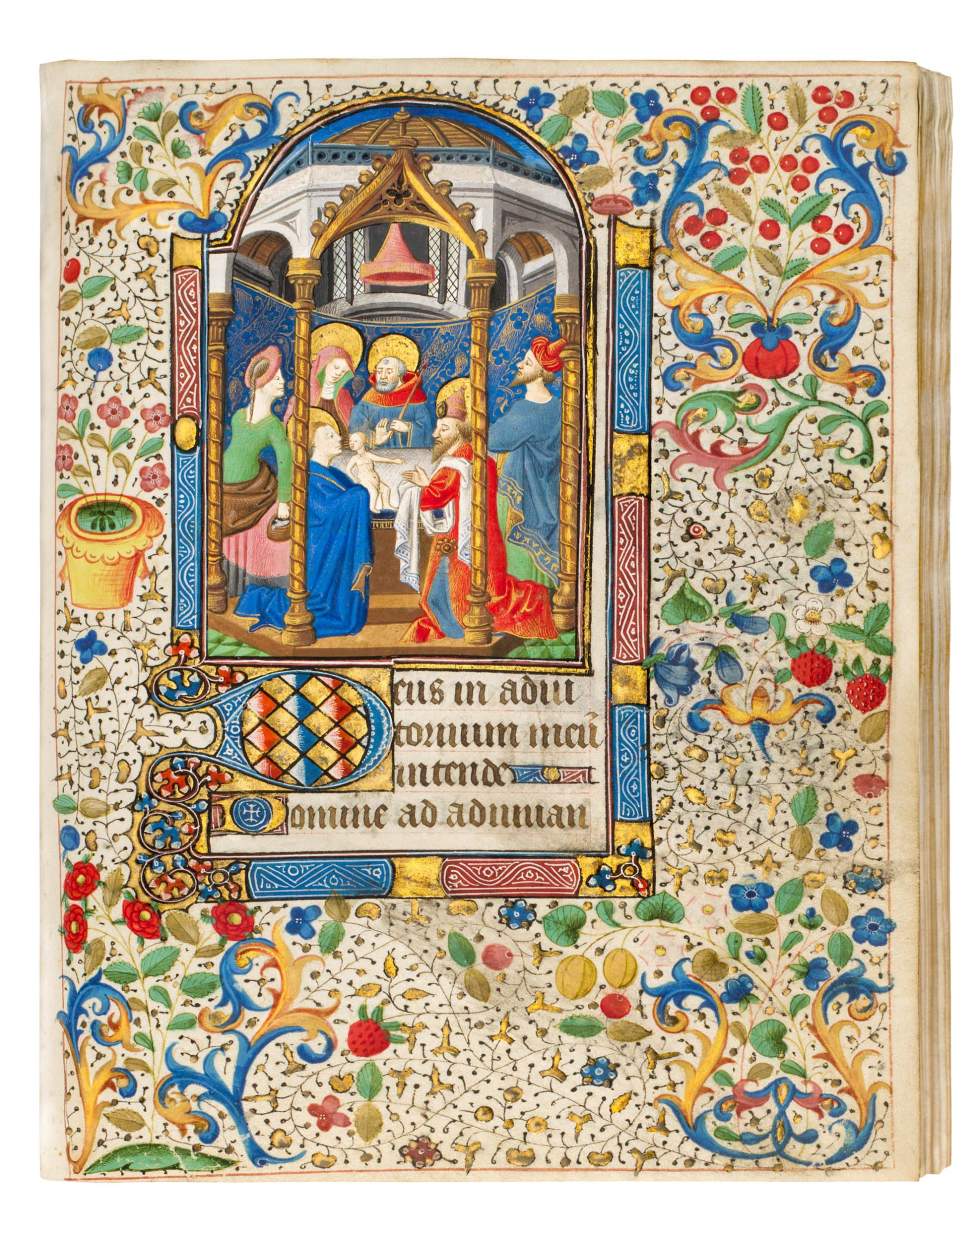 Deus in adiut
torium meū
intende
Domine ad adiuuan